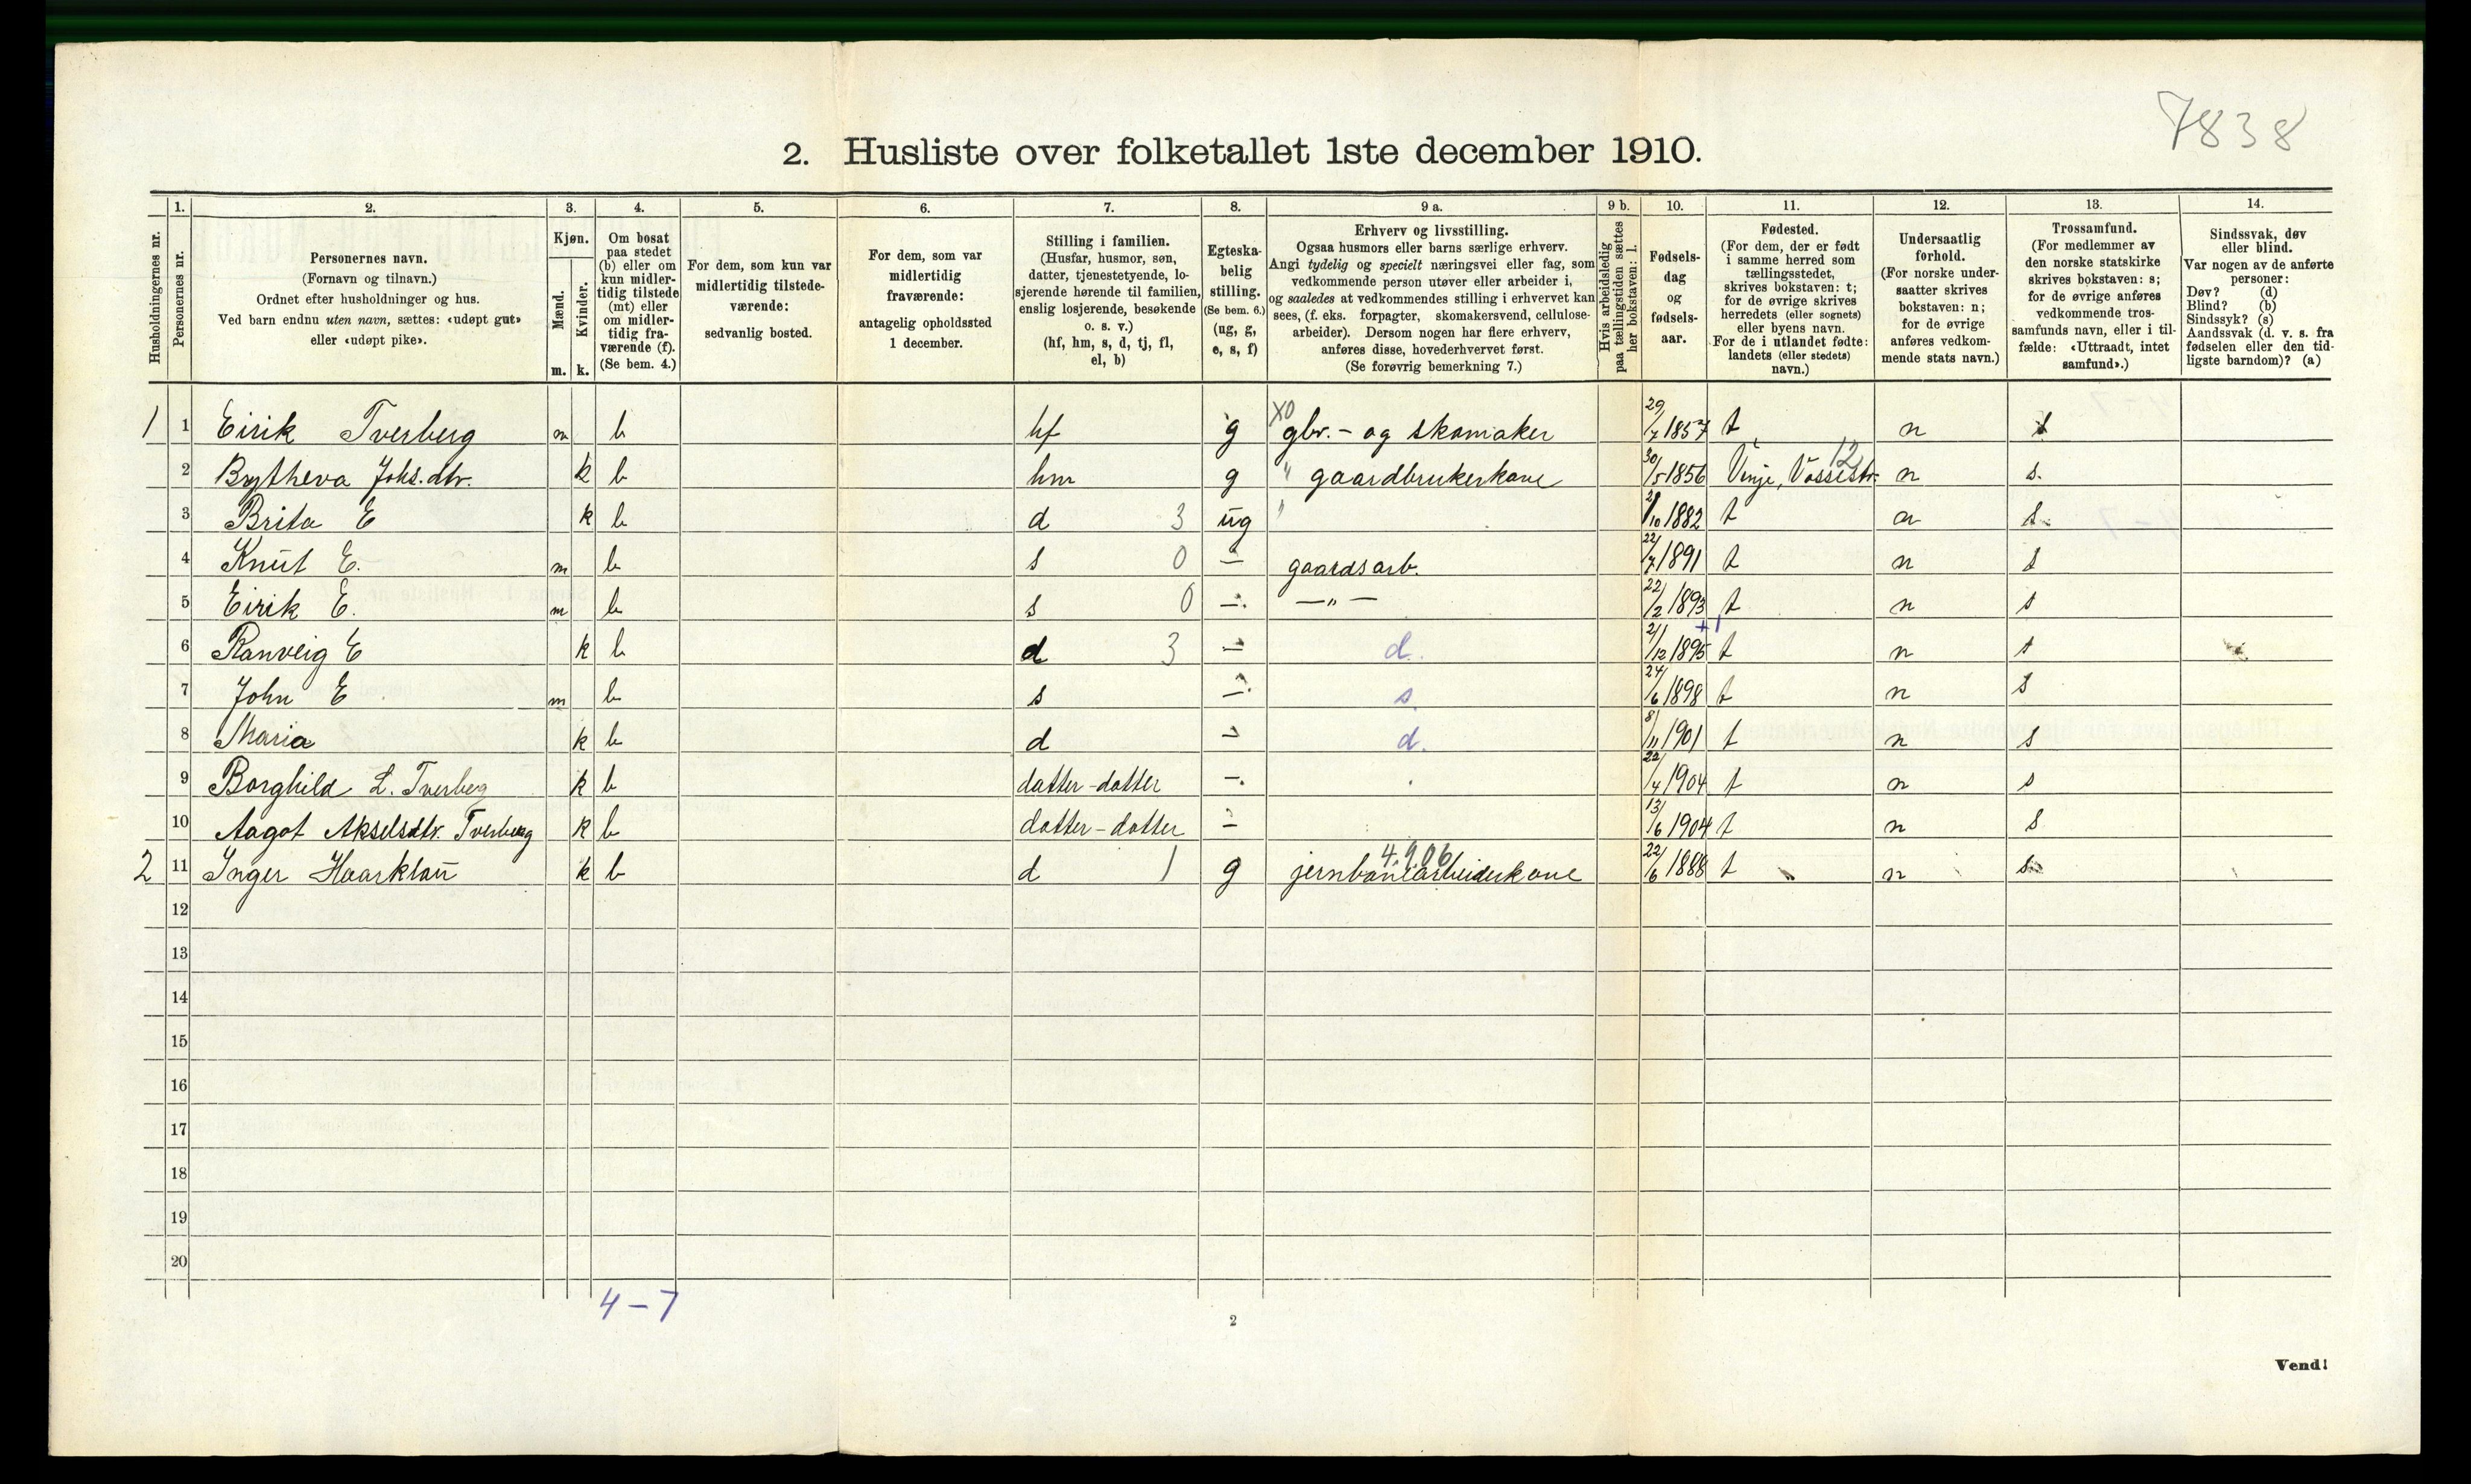 7838
2. Husliste over folketallet 1ste december 1910.
Husholdningernes nr.
1.
Personernes nr.
2.
Personernes navn.
(Fornavn og tilnavn.)
Ordnet efter husholdninger og hus.
Ved barn endnu uten navn, sættes: «udøpt gut»
eller «udøpt pike».
3.
Kjøn.
Mænd.
Kvinder.
m. k.
4.
Om bosat
paa stedet
(b) eller om
kun midler-
tidig tilstede
(mt) eller
om midler-
tidig fra-
værende (f).
(Se bem. 4.)
5.
For dem, som kun var
midlertidig tilstede-
værende:
sedvanlig bosted.
6.
For dem, som var
midlertidig
fraværende:
antagelig opholdssted
1 december.
7.
Stilling i familien.
(Husfar, husmor, søn,
datter, tjenestetyende, lo-
sjerende hørende til familien,
enslig losjerende, besøkende
o. s. v.)
(hf, hm, s, d, tj, fl,
el, b)
8.
Egteska-
belig
stilling.
(Se bem. 6.)
(ug, g,
e, s, f)
9 a.
Erhverv og livsstilling.
Ogsaa husmors eller barns særlige erhverv.
Angi tydelig og specielt næringsvei eller fag, som
vedkommende person utøver eller arbeider i,
og saaledes at vedkommendes stilling i erhvervet kan
sees, (f. eks. forpagter, skomakersvend, cellulose-
arbeider). Dersom nogen har flere erhverv,
anføres disse, hovederhvervet først.
(Se forøvrig bemerkning 7.)
9 b.
Hvis arbeidsledig
paa tællingstiden sættes
her bokstaven: l.
10.
Fødsels-
dag
og
fødsels-
aar.
11.
Fødested.
(For dem, der er født
i samme herred som
tællingsstedet,
skrives bokstaven: t;
for de øvrige skrives
herredets (eller sognets)
eller byens navn.
For de i utlandet fødte:
landets (eller stedets)
navn.)
12.
Undersaatlig
forhold.
(For norske under-
saatter skrives
bokstaven: n;
for de øvrige
anføres vedkom-
mende stats navn.)
13.
Trossamfund.
(For medlemmer av
den norske statskirke
skrives bokstaven: s;
for de øvrige anføres
vedkommende tros-
samfunds navn, eller i til-
fælde: «Uttraadt, intet
samfund».)
14.
Sindssvak, døv
eller blind.
Var nogen av de anførte
personer:
Døv? (d)
Blind? (b)
Sindssyk? (s)
Aandssvak (d. v. s. fra
fødselen eller den tid-
ligste barndom)? (a)
1 1 Eirik Tverberg m b hf g XO gbr. - og skomaker 29/7 1857 t n s
2 Brytheva Johs.dtr. k b hm g " gaardbrukerkone 30/5 1856 Vinje, Vossestr. 12 n s.
3 Brita E k b d 3 ug " /10 1882 t n s.
4 Knut E. m b s 0 — gaardsarb. 22/7 1891 t n s
5 Eirik E. m b s 0 —. — " — 22/2 1893 t n s
6 Ranveig E k b d 3 — d. 21/12 1895 t n s
7 John E m b s —. s. 24/6 1898 t n s
8 Maria k b d — d. 8/11 1901 t n s
9 Borghild L. Tverberg k b datter-datter —. 22/4 1904 t n s
10 Aagot Akselsdtr. Tverberg k b datter-datter — 13/6 1904 t n s
2 11 Inger Haarklau k b d 1 g 4.906 jernbanearbeiderkone 22/6 1888 t n s
12
13
14
15
16
17
18
19
20
4 - 7
2
Vend!